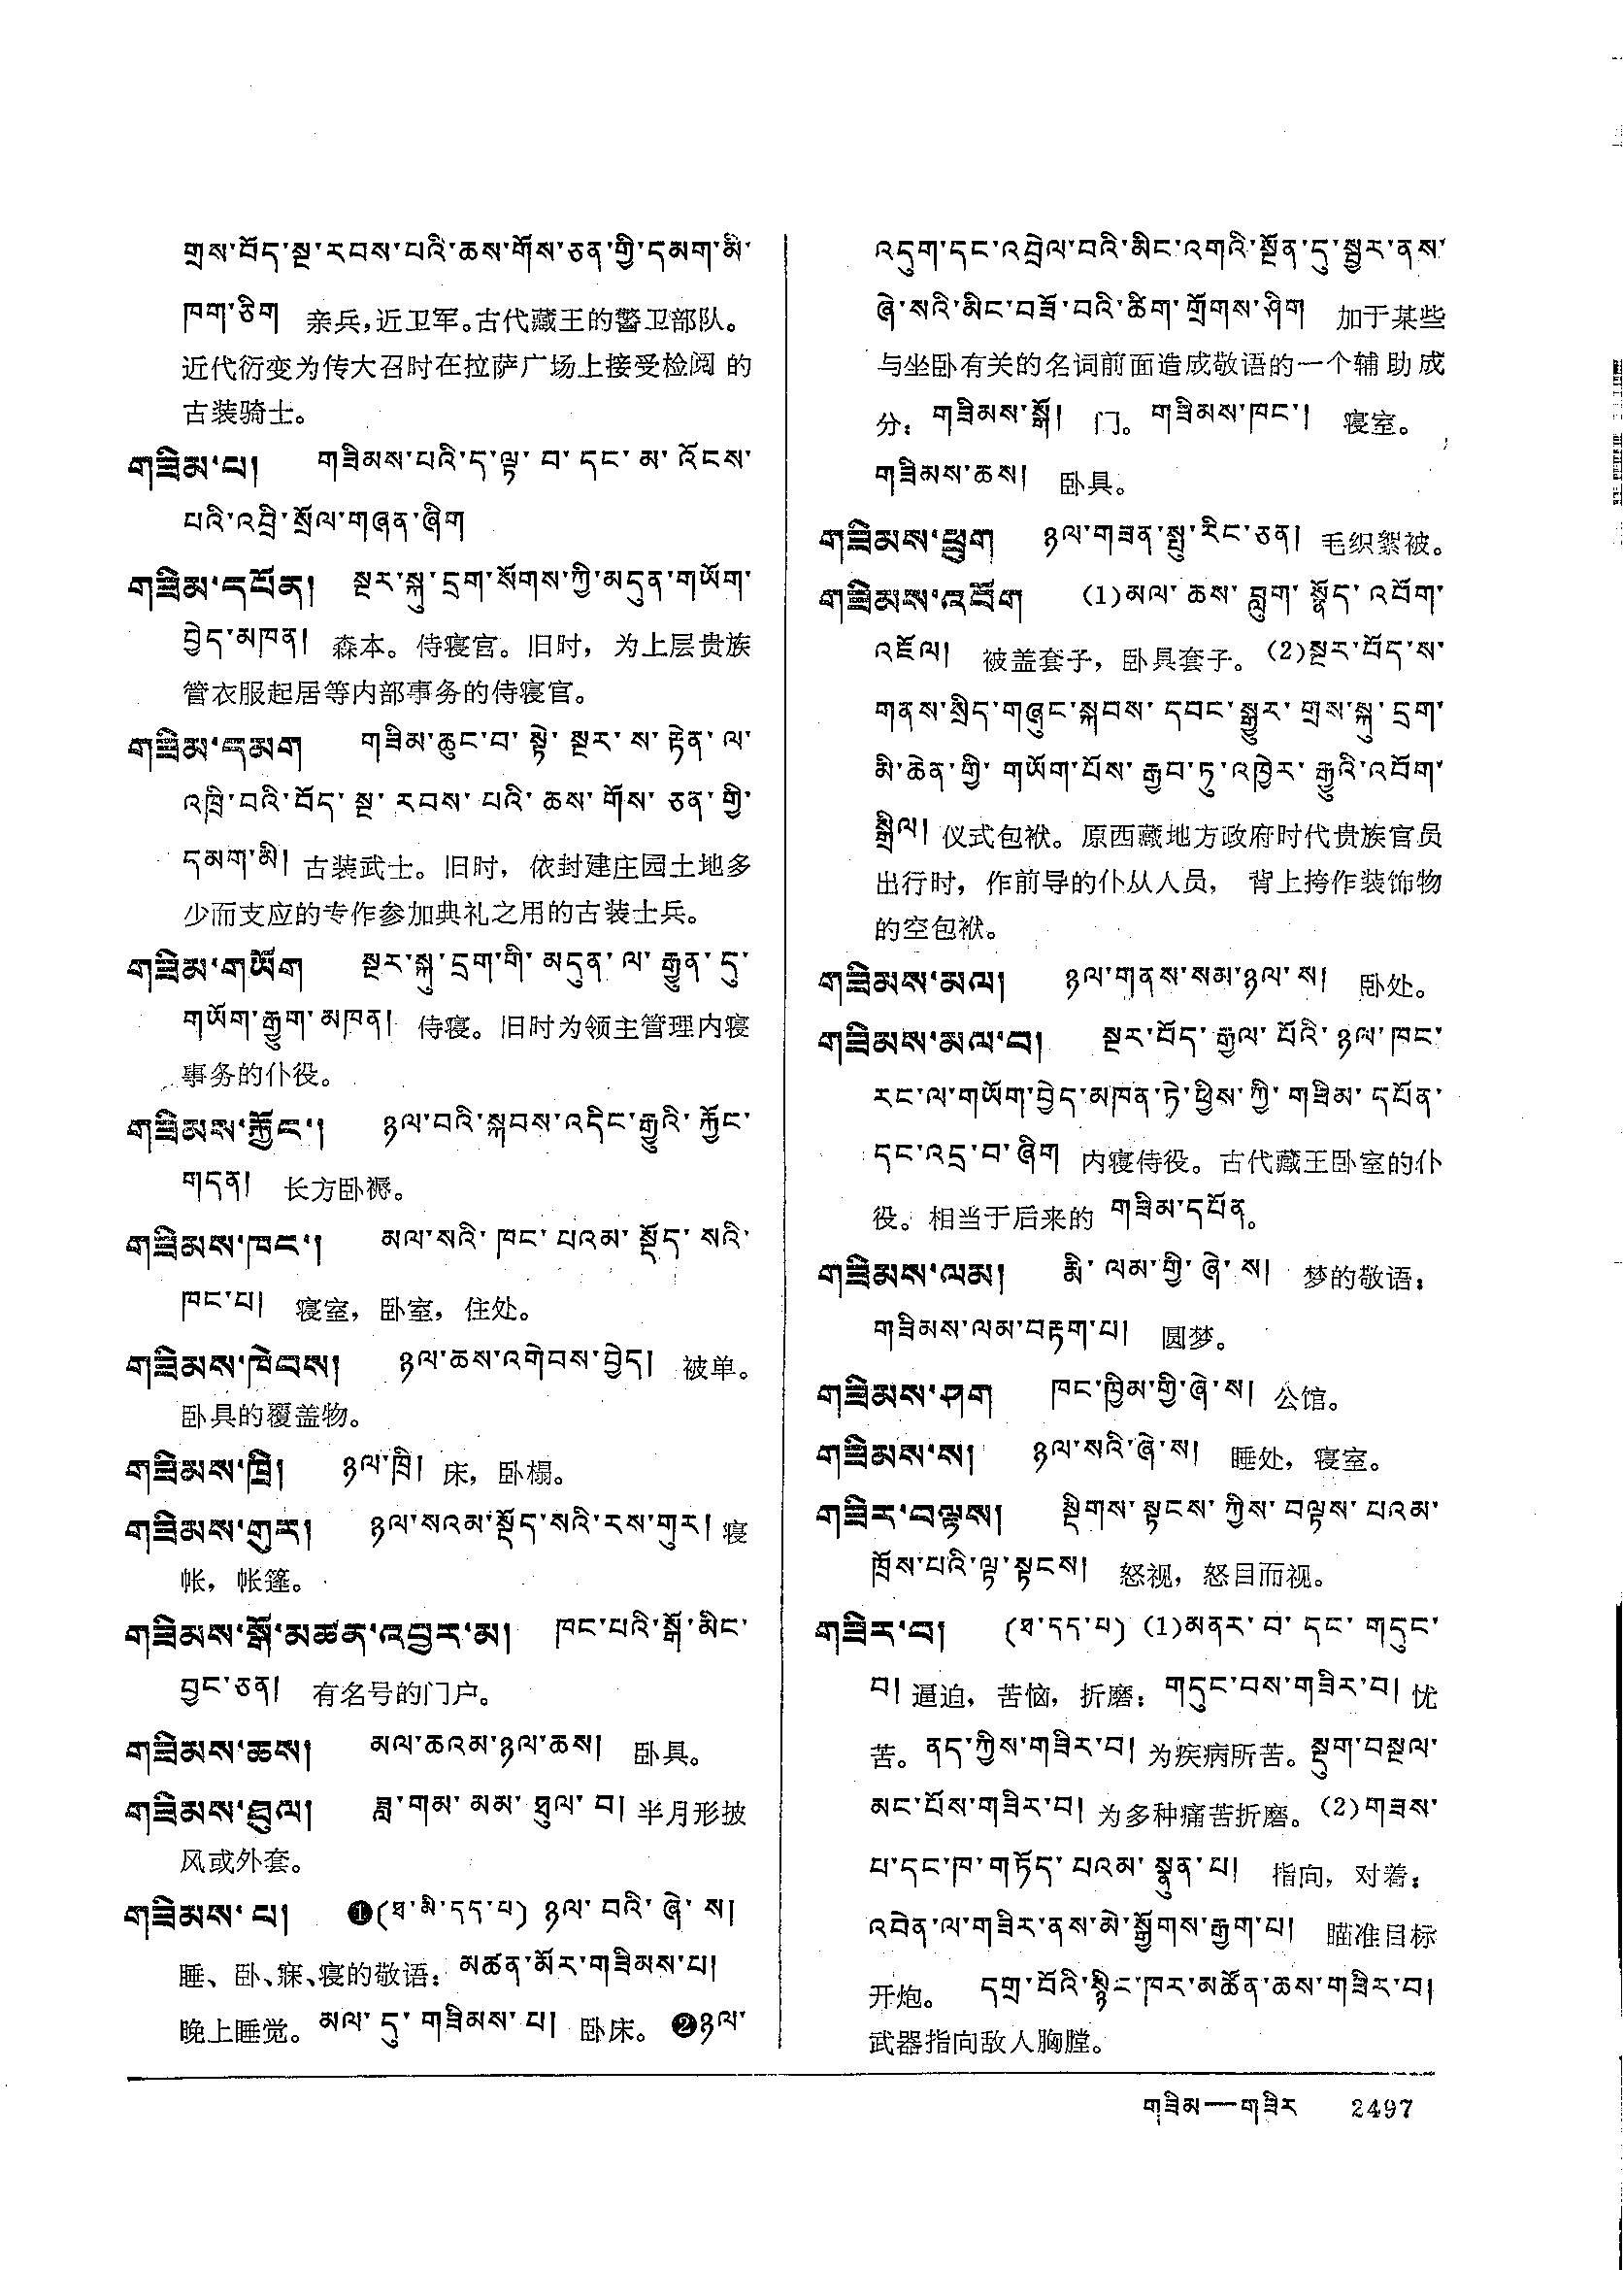 གྲས་བོད་སྔ་རབས་པའི་ཆས་གོས་ཅན་གྱི་དམག་མི་
ཁག་ཅིག 亲兵,近卫军。古代藏王的警卫部队。
近代衍变为传大召时在拉萨广场上接受检阅的
古装骑士。
གཟིམ་པ། གཟིམས་པའི་ད་ལྟ་བ་དང་མ་འོངས་
པའི་འབྲི་སྲོལ་གཞན་ཞིག
གཟིམ་དཔོན། སྔར་སྐུ་དྲག་སོགས་ཀྱི་མདུན་གཡོག་
བྱེད་མཁན། 森本。侍寝官。旧时，为上层贵族
管衣服起居等内部事务的侍寝官。
གཟིམ་དམག གཟིམ་ཆུང་བ་སྟེ་སྔར་ས་རྟེན་ལ་
འཁྲི་བའི་བོད་སྔ་རབས་པའི་ཆས་གོས་ཅན་གྱི་
དམག་མི། 古装武士。旧时，依封建庄园土地多
少而支应的专作参加典礼之用的古装士兵。
གཟིམ་གཡོག སྔར་སྐུ་དྲག་གི་མདུན་ལ་རྒྱུན་དུ་
གཡོག་རྒྱུག་མཁན། 侍寝。旧时为领主管理内寝
事务的仆役。
གཟིམས་རྐྱོང་། ཉལ་བའི་སྐབས་འདིང་རྒྱུའི་རྐྱོང་
གདན། 长方卧褥。
གཟིམས་ཁང་། མལ་སའི་ཁང་པའམ་སྡོད་སའི་
ཁང་པ། 寝室，卧室，住处。
གཟིམས་ཁེབས། ཉལ་ཆས་འགེབས་བྱེད། 被单。
卧具的覆盖物。
གཟིམས་ཁྲི། ཉལ་ཁྲི། 床，卧榻。
གཟིམས་གུར། ཉལ་སའམ་སྡོད་སའི་རས་གུར། 寝
帐，帐篷。
གཟིམས་སྒོ་མཚན་འབྱར་མ། ཁང་པའི་སྒོ་མིང་
བྱང་ཅན། 有名号的门户。
གཟིམས་ཆས། མལ་ཆའམ་ཉལ་ཆས། 卧具。
གཟིམས་ཐུལ། ཟླ་གམ་མམ་ཐུལ་བ། 半月形披
风或外套。
གཟིམས་པ། ❶(ཐ་མི་དད་པ) ཉལ་བའི་ཞེ་ས།
睡、卧、寐、寝的敬语：མཚན་མོར་གཟིམས་པ།
晚上睡觉。མལ་དུ་གཟིམས་པ། 卧床。❷ཉལ་
འདུག་དང་འབྲེལ་བའི་མིང་འགའི་སྔོན་དུ་སྦྱར་ནས་
ཞེ་སའི་མིང་བཟོ་བའི་ཚིག་གྲོགས་ཤིག 加于某些
与坐卧有关的名词前面造成敬语的一个辅助成
分：གཟིམས་སྒོ། 门。གཟིམས་ཁང་། 寝室。
གཟིམས་ཆས། 卧具。
གཟིམས་ཕྲུག ཉལ་གཟན་སྤུ་རིང་ཅན། 毛织絮被。
གཟིམས་འབོག (1)མལ་ཆས་བླུག་སྣོད་འབོག་
འཇོལ། 被盖套子，卧具套子。(2)སྔར་བོད་ས་
གནས་སྲིད་གཞུང་སྐབས་དབང་སྒྱུར་གྲས་སྐུ་དྲག་
མི་ཆེན་གྱི་གཡོག་པོས་རྒྱབ་ཏུ་འཁྱེར་རྒྱུའི་འབོག་
སྒྲིལ། 仪式包袱。原西藏地方政府时代贵族官员
出行时，作前导的仆从人员，背上挎作装饰物
的空包袱。
གཟིམས་མལ། ཉལ་གནས་སམ་ཉལ་ས། 卧处。
གཟིམས་མལ་བ། སྔར་བོད་རྒྱལ་པོའི་ཉལ་ཁང་
རང་ལ་གཡོག་བྱེད་མཁན་ཏེ་ཕྱིས་ཀྱི་གཟིམ་དཔོན་
དང་འདྲ་བ་ཞིག 内寝侍役。古代藏王卧室的仆
役。相当于后来的 གཟིམ་དཔོན。
གཟིམས་ལམ། རྨི་ལམ་གྱི་ཞེ་ས། 梦的敬语：
གཟིམས་ལམ་བརྟག་པ། 圆梦。
གཟིམས་ཤག ཁང་ཁྱིམ་གྱི་ཞེ་ས། 公馆。
གཟིམས་ས། ཉལ་སའི་ཞེ་ས། 睡处，寝室。
གཟིར་བལྟས། སྡིགས་སྟངས་ཀྱིས་བལྟས་པའམ་
ཁྲོས་པའི་ལྟ་སྟངས། 怒视，怒目而视。
གཟིར་བ། (ཐ་དད་པ) (1)མནར་བ་དང་གདུང་
བ། 逼迫，苦恼，折磨：གདུང་བས་གཟིར་བ། 忧
苦。ནད་ཀྱིས་གཟིར་བ། 为疾病所苦。སྡུག་བསྔལ་
མང་པོས་གཟིར་བ། 为多种痛苦折磨。(2)གཟས་
པ་དང་ཁ་གཏོད་པའམ་སྣུན་པ། 指向，对着：
འབེན་ལ་གཟིར་ནས་མེ་སྒྱོགས་རྒྱག་པ། 瞄准目标
开炮。དགྲ་བོའི་སྙིང་ཁར་མཚོན་ཆས་གཟིར་བ།
武器指向敌人胸膛。
གཟིམ—གཟིར 2497